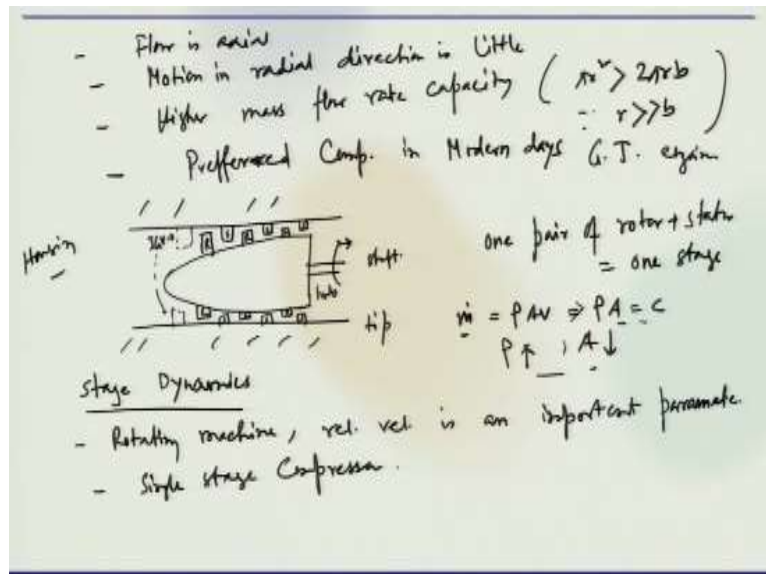 - Flow is axial
- Motion in radial direction is little
- Higher mass flow rate capacity ( πr² > 2πrb
∵ r>>b )
- Prefferered Comp. in Modern days G.T. engine
one pair of rotor + stator
= one stage
shaft
tip
ṁ = ρAV ⇒ ρA = c
ρ↑, A↓
Stage Dynamics
- Rotating machine, rel. vel. is an important paramete.
- Single stage Compressor.